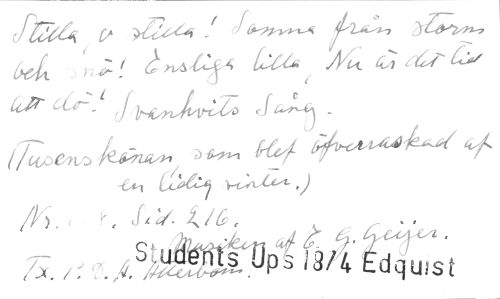 Stilla, o stilla! Somna från storm
och snö! Ensliga lilla, Nu är det tid
att dö! Svanhvits Sång.
(Tusenskönan, som blef öfverraskad af
en tidig vinter.)
Nr. Sid. 216.
Musiken af E. G. Geijer.
Students Ups 18/4 Edquist
Tx. P. D. A. Atterbom.